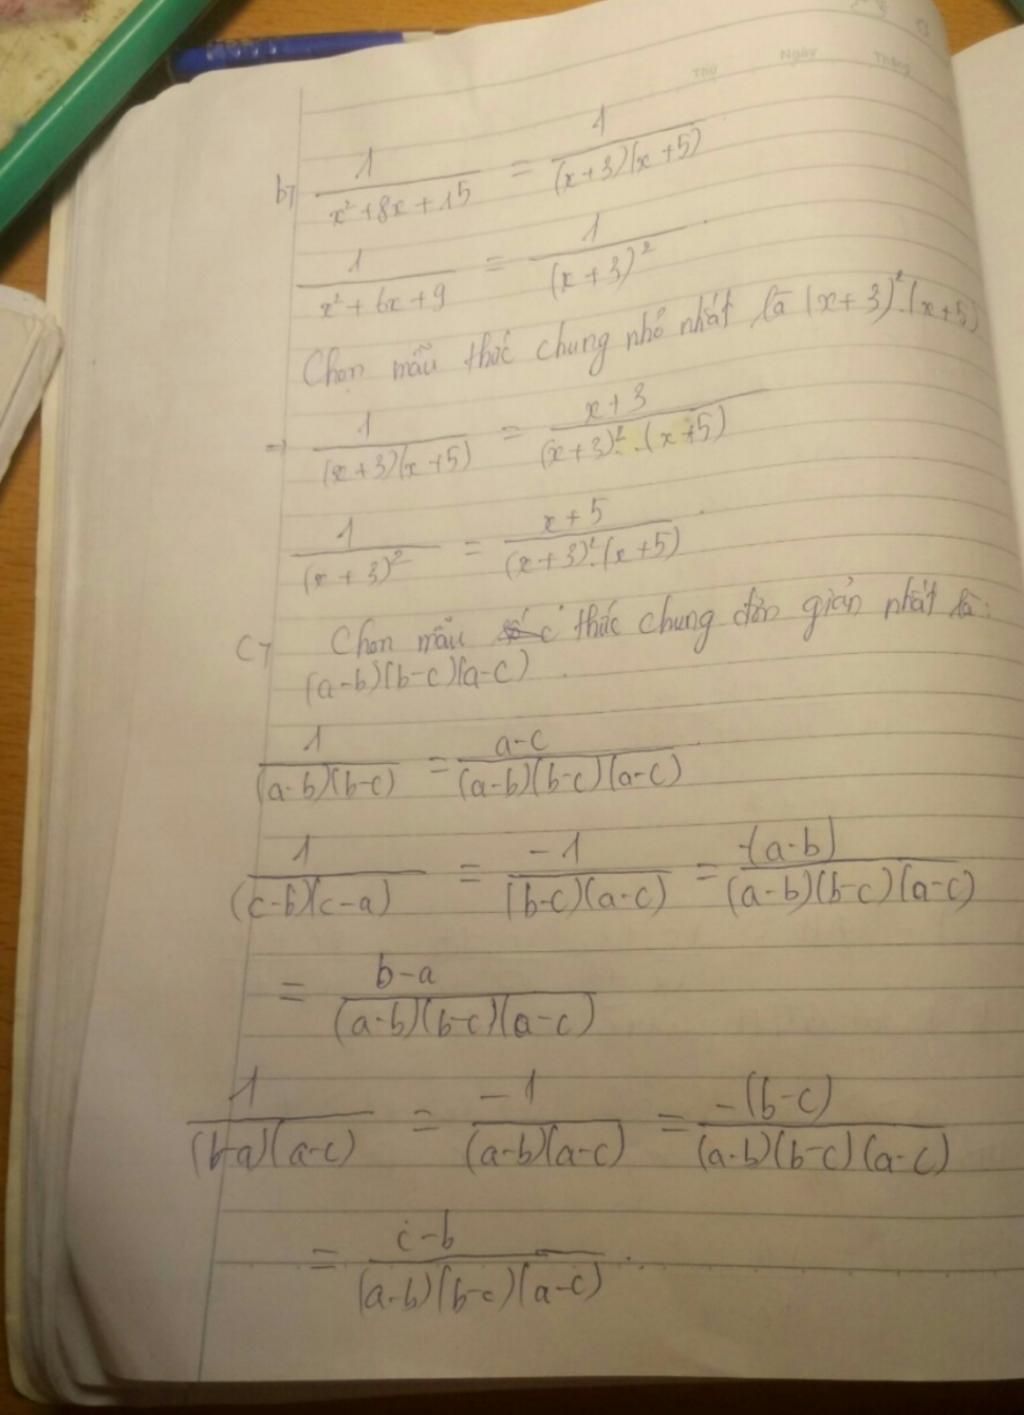 Thứ Ngày Tháng
b, 1/(x²+8x+15) = 1/((x+3)(x+5))
1/(x²+6x+9) = 1/(x+3)²
Chọn mẫu thức chung nhỏ nhất là (x+3)².(x+5)
⇒ 1/((x+3)(x+5)) = (x+3)/((x+3)².(x+5))
1/(x+3)² = (x+5)/((x+3)².(x+5)).
C, Chọn mẫu thức chung đơn giản nhất là:
(a-b)(b-c)(a-c).
1/((a-b)(b-c)) = (a-c)/((a-b)(b-c)(a-c))
1/((c-b)(c-a)) = -1/((b-c)(a-c)) = -(a-b)/((a-b)(b-c)(a-c))
= (b-a)/((a-b)(b-c)(a-c))
1/((b-a)(a-c)) = -1/((a-b)(a-c)) = -(b-c)/((a-b)(b-c)(a-c))
= (c-b)/((a-b)(b-c)(a-c)).